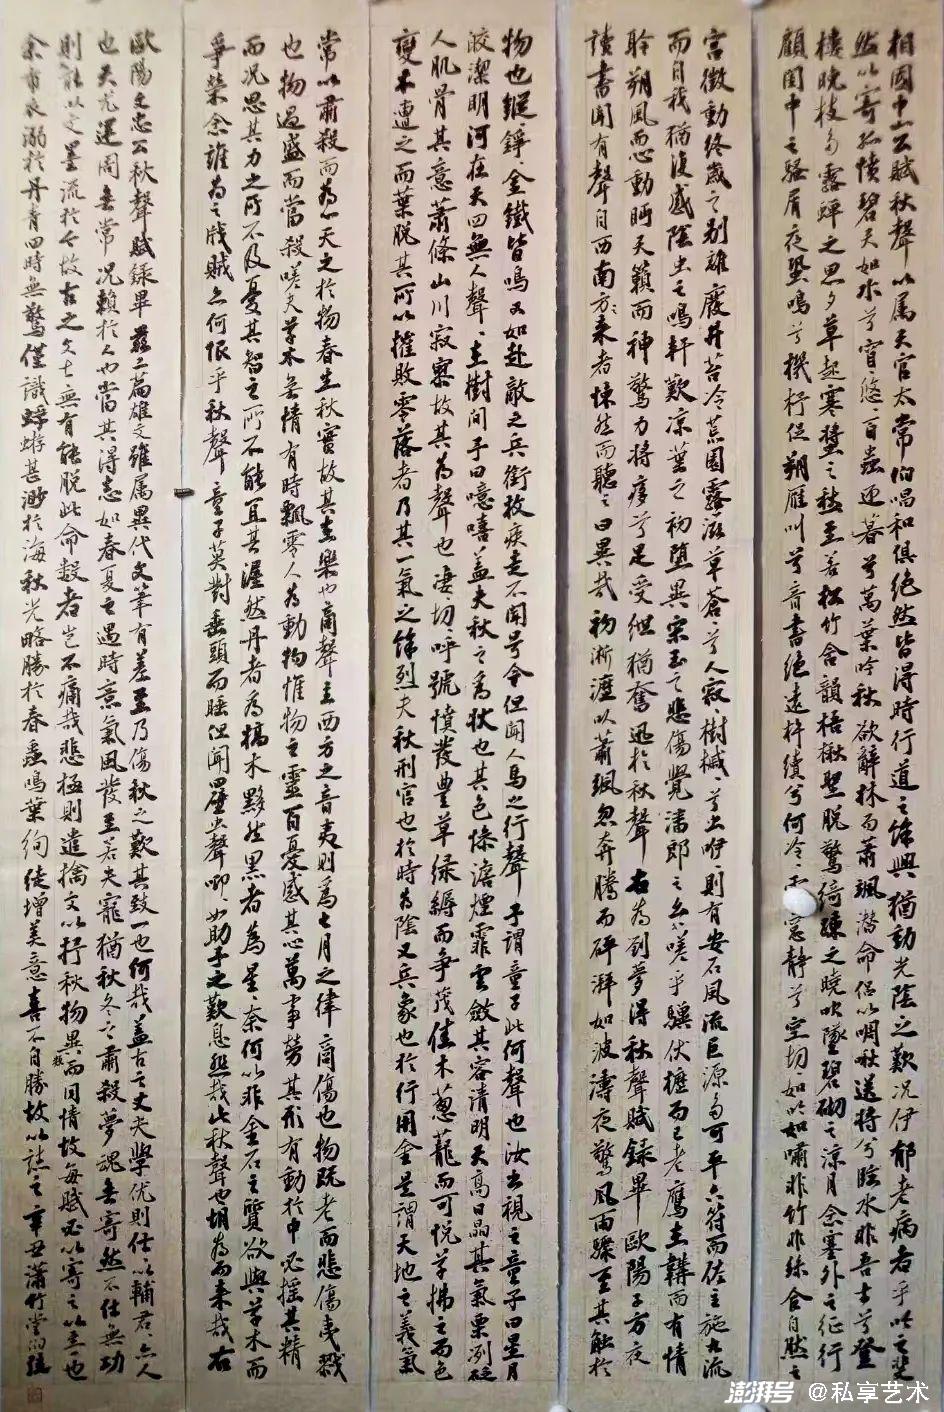 相國中山公賦秋聲以属天官太常伯唱和俱絶然皆得時行道之餘興猶動光陰之歎况伊郁老病者乎吟之斐
然以寄孤憤碧天如水兮窅悠悠百蟲迎暮兮萬葉吟秋欲辭林而蕭颯潛命侣以啁啾送將兮臨水非吾土兮登
樓晚枝多露蟬之思夕草起寒螿之愁至若松竹含韻梧楸蚤脱驚綺疎之曉吹墜碧砌之涼月念塞外之征行
顧閨中之騷屑夜蛩鳴兮機杼促朔雁叫兮音書絶遠杵續兮何泠泠虚窻静兮空切切如吟如嘯非竹非絲合自然之
宮徵動終歲之别離廢井苔冷荒園露滋草蒼蒼兮人寂寂樹槭槭兮虫咿咿則有安石風流巨源多可平六符而佐主施九流
而自我猶復感陰虫之鳴軒歎凉葉之初堕異宋玉之悲傷覺潘郎之幺麽嗟乎驥伏櫪而已老鷹在韝而有情
聆朔風而心動眄天籟而神驚力將痑兮足受紲猶奮迅於秋聲 右為劉夢得秋聲賦錄畢 歐陽子方夜
讀書聞有聲自西南方來者悚然而聽之曰異哉初淅瀝以蕭颯忽奔騰而砰湃如波濤夜驚風雨驟至其觸於
物也鏦錚錚金鐵皆鳴又如赴敵之兵銜枚疾走不聞号令但聞人馬之行聲 予謂童子此何聲也汝出視之童子曰星月
皎潔明河在天四無人聲聲在樹間予曰噫嘻 盖夫秋之為狀也其色慘澹煙霏雲斂其容清明天高日晶其氣栗冽砭
人肌骨其意蕭條山川寂寥故其為聲也凄凄切切呼號憤發豊草绿縟而争茂佳木蔥蘢而可悦草拂之而色
變木遭之而葉脱其所以摧敗零落者乃其一氣之餘烈夫秋刑官也於時為陰又兵象也於行用金是謂天地之義氣
常以肅殺而為心天之於物春生秋實故其在樂也商聲主西方之音夷則為七月之律商傷也物既老而悲傷夷戮
也物過盛而當殺嗟夫草木無情有時飄零人為動物惟物之靈百憂感其心萬事勞其形有動於中必摇其精
而况思其力之所不及憂其智之所不能宜其渥然丹者為槁木黟然黑者為星星奈何以非金石之質欲與草木而
爭榮念誰為之戕賊亦何恨乎秋聲 童子莫對垂頭而睡但聞四壁虫聲唧唧如助予之歎息 此秋聲也胡為而来哉右
歐陽文忠公秋聲賦録畢 兹二篇雄文雖属異代文筆有差至乃傷秋之歎其致一也何哉盖古之丈夫學優則仕以輔君亦人
也天光運周無常况賴於人也當其得志如春夏之遇時意氣風發至若失寵猶秋冬之肅殺夢魂無寄然不仕無功
則能以文墨流於今故古之文士無有能脱此命數者岂不痛哉悲極則遣擒文以抒秋物異而同情故每賦必以寄之以
余亦衣溺於丹青四時無驚僅識蜉蝣甚渺於海秋光略勝於春蟲鳴葉絢徒增美意喜不自勝故以誌之辛丑瀟竹堂
澎湃号 @私享艺术